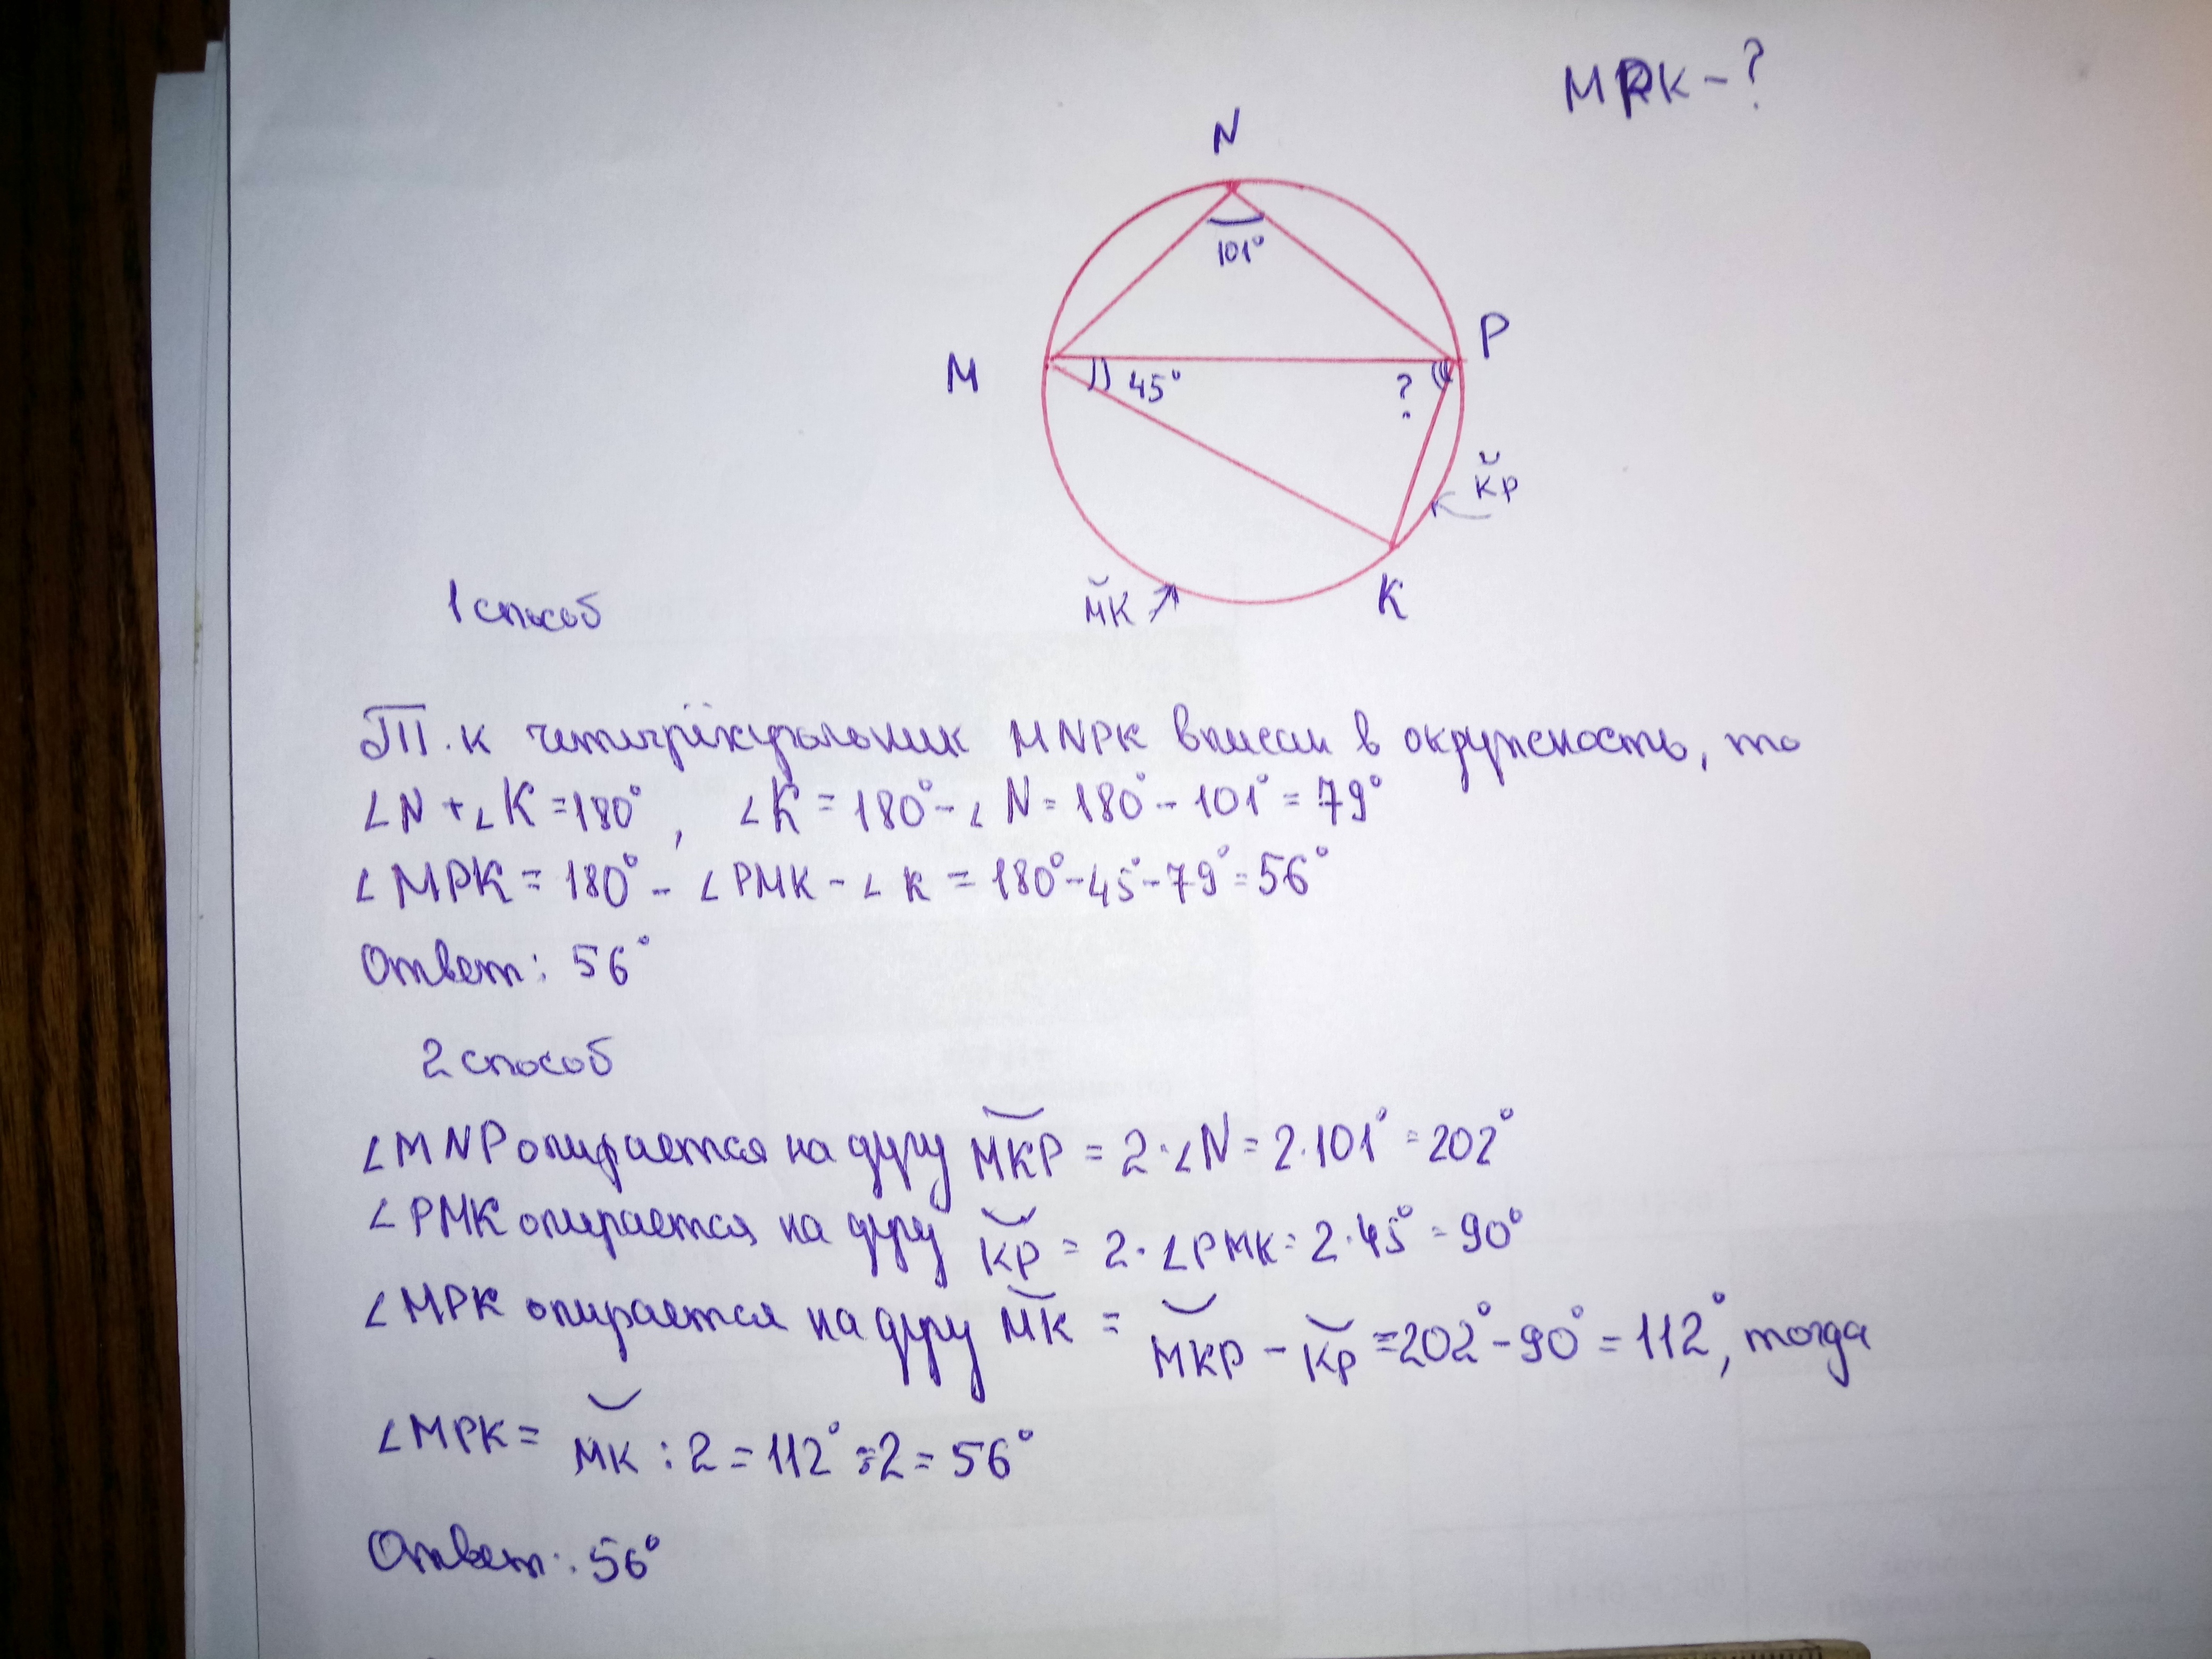 MPK - ?
N
101°
P
M
45°
?
K͝P
M͝K
K
1 способ
Т.к четырёхугольник MNPK вписан в окружность, то
∠N + ∠K = 180°, ∠K = 180° - ∠N = 180° - 101° = 79°
∠MPK = 180° - ∠PMK - ∠K = 180° - 45° - 79° = 56°
Ответ: 56°
2 способ
∠MNP опирается на дугу M͝KP = 2·∠N = 2·101° = 202°
∠PMK опирается на дугу K͝P = 2·∠PMK = 2·45° = 90°
∠MPK опирается на дугу M͝K = M͝KP - K͝P = 202° - 90° = 112°, тогда
∠MPK = M͝K : 2 = 112° : 2 = 56°
Ответ: 56°